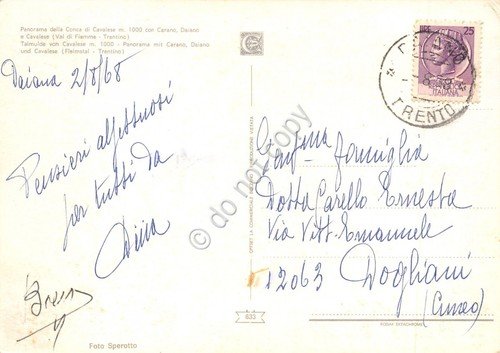 Panorama della Conca di Cavalese m. 1000 con Carano, Daiano
e Cavalese (Val di Fiemme - Trentino)
Talmulde von Cavalese m. 1000 - Panorama mit Carano, Daiano
und Cavalese (Fleimstal - Trentino)
Daiano 2/8/68
Pensieri affettuosi
per tutti da
Dina
Foto Sperotto
633
25
ITALIANA
TRENTO
famiglia
Dott Carello Ernesto
Via Vitt. Emanuele
12063 Dogliani
(Cuneo)
do not copy